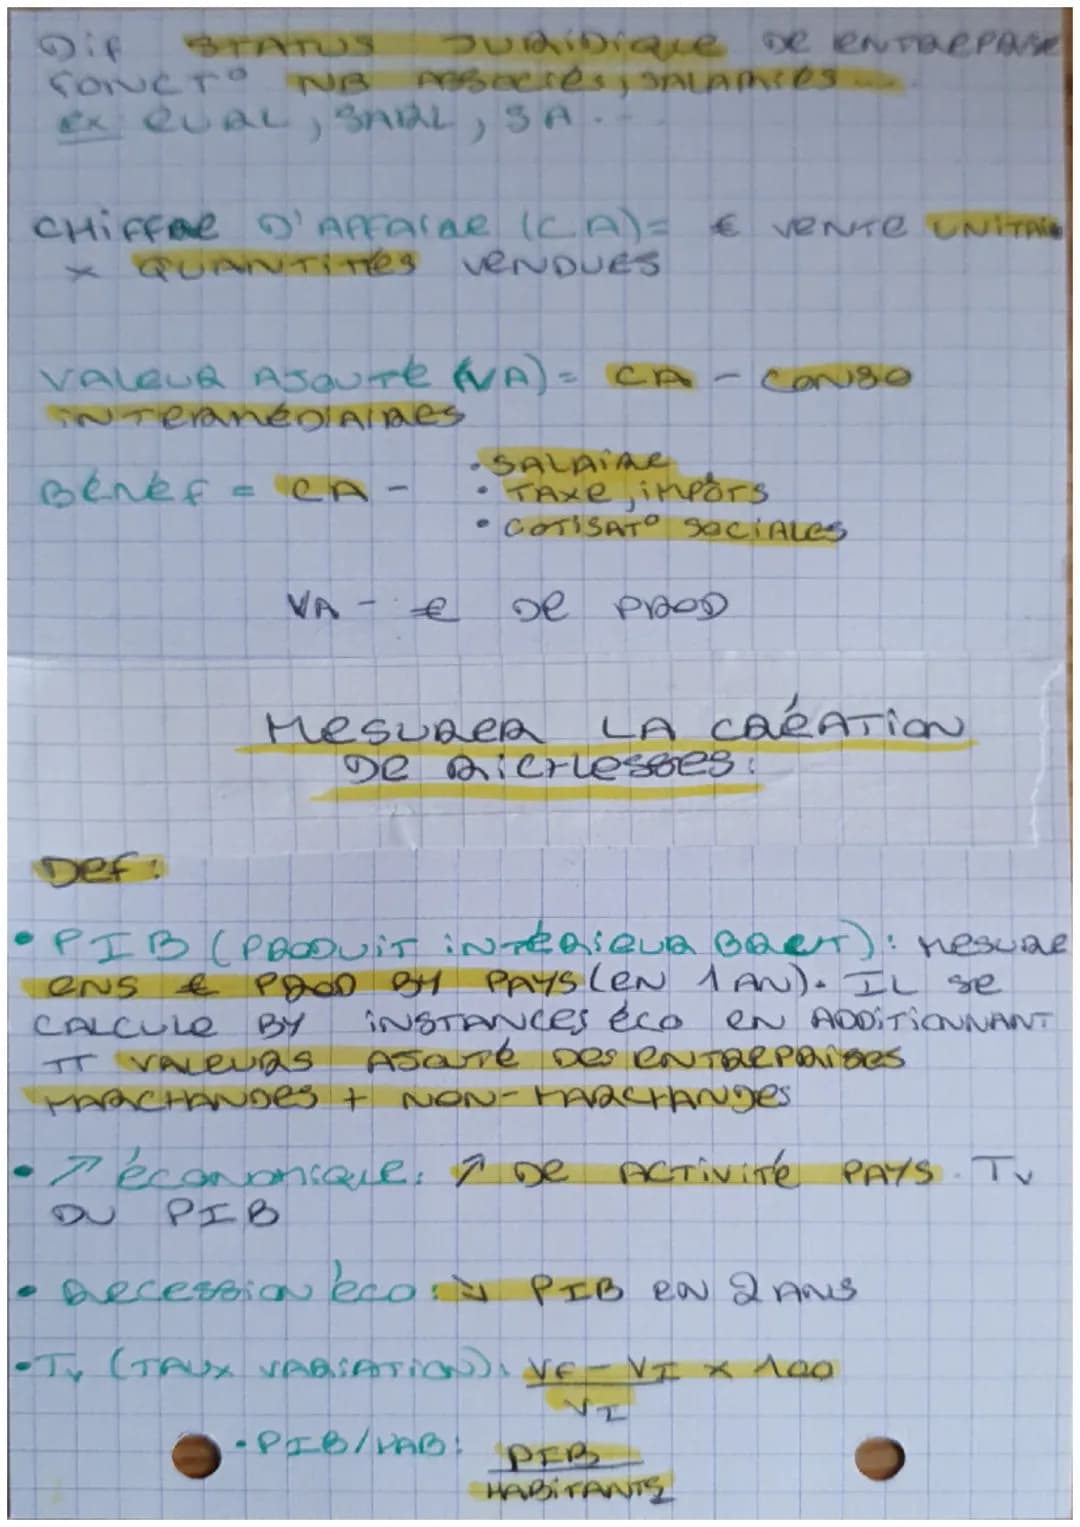 Dif STATUS JURIDIQUE DE ENTREPRISE
FONCT° NB ASSOCIÉS, SALARIÉS ...
EX EURL, SARL, SA...
CHIFFRE D'AFFAIRE (CA) = € VENTE UNITAIRE
x QUANTITÉS VENDUES
VALEUR AJOUTÉ (VA) = CA - CONSO
INTERMÉDIAIRES
BÉNÉF = CA -
• SALAIRE
• TAXE, IMPÔTS
• COTISAT° SOCIALES
VA - € DE PROD
MESURER LA CRÉATION
DE RICHESSES:
Def:
• PIB (PRODUIT INTÉRIEUR BRUT): MESURE
ENS € PROD BY PAYS (EN 1 AN). IL SE
CALCULE BY INSTANCES ÉCO EN ADDITIONNANT
TT VALEURS AJOUTÉ DES ENTREPRISES
MARCHANDES + NON-MARCHANDES
• ↗ économique: ↗ DE ACTIVITÉ PAYS. Tv
DU PIB
• Recession éco: ↘ PIB EN 2 ANS
• Tv (TAUX VARIATION): VF - VI x 100
VI
• PIB/HAB: PIB
HABITANTS